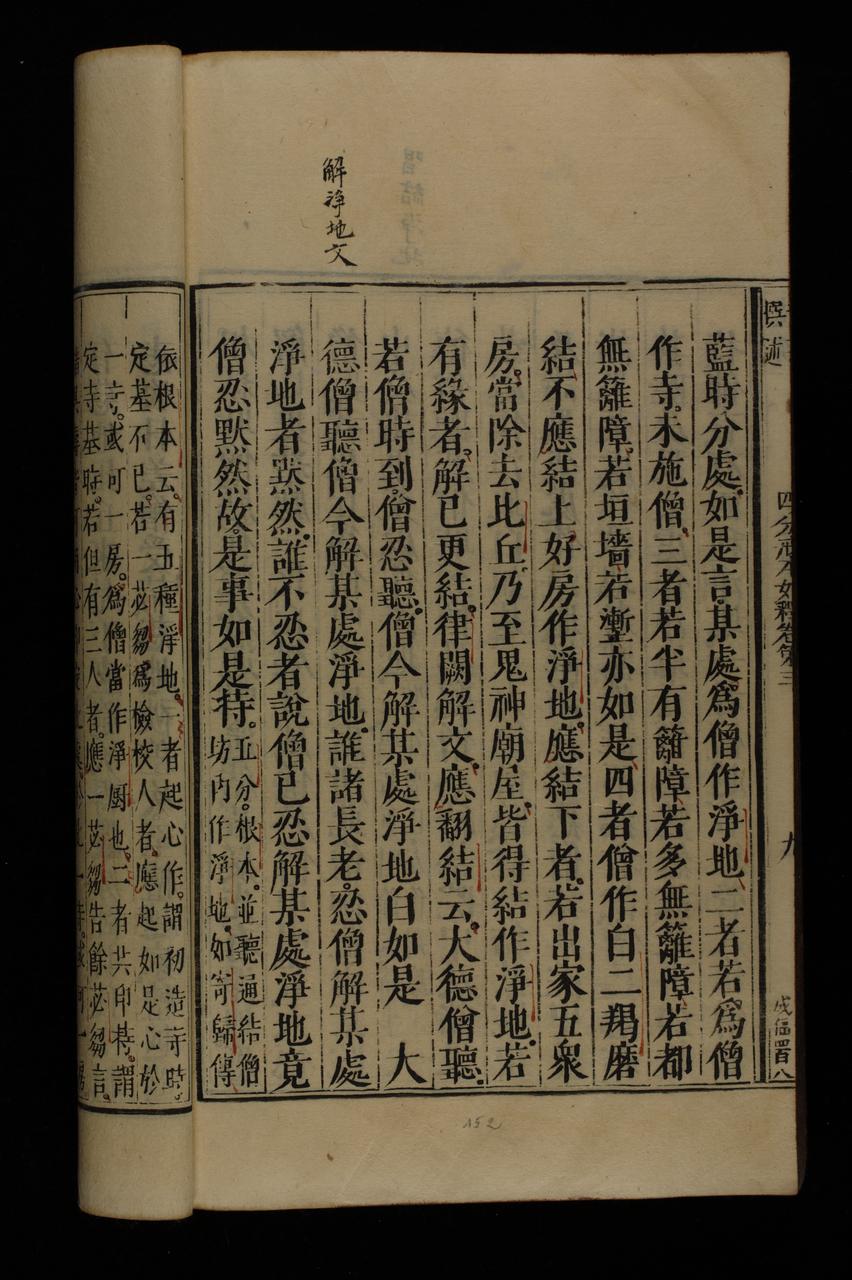 撰述
四分戒本如釋卷第三
九
藍時分處如是言某處為僧作淨地二者若為僧
作寺未施僧三者若半有籬障若多無籬障若都
無籬障若垣墻若塹亦如是四者僧作白二羯磨
結不應結上好房作淨地應結下者若出家五衆
房當除去比丘乃至鬼神廟屋皆得結作淨地若
有緣者解已更結律闕解文應翻結云大德僧聽
若僧時到僧忍聽僧今解某處淨地白如是　大
德僧聽僧今解某處淨地誰諸長老忍僧解某處
淨地者默然誰不忍者說僧已忍解某處淨地竟
僧忍默然故是事如是持
五分根本並聽通結僧
坊內作淨地如寄歸傳
解淨地文
依根本云有五種淨地一者起心作謂初造寺時
定基不已若一苾芻為檢校人者應起如是心於
一寺或可一房為僧當作淨厨也二者共印持謂
定寺基時若但有三人者應一苾芻告餘苾芻言
152